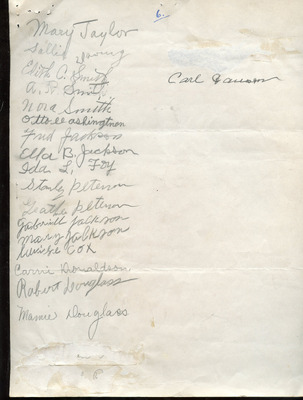 6.
Mary Taylor
Sallie Young
Edith A. Smith
A. R. Smith
Nora Smith
Otto Washington
Fred Jackson
Ella B. Jackson
Ida L. Fry
Stanly Peterson
Peterson
Gabriell Jackson
Mary Jackson
Cox
Carrie Donaldson
Robert Douglass
Mamie Douglass
Carl